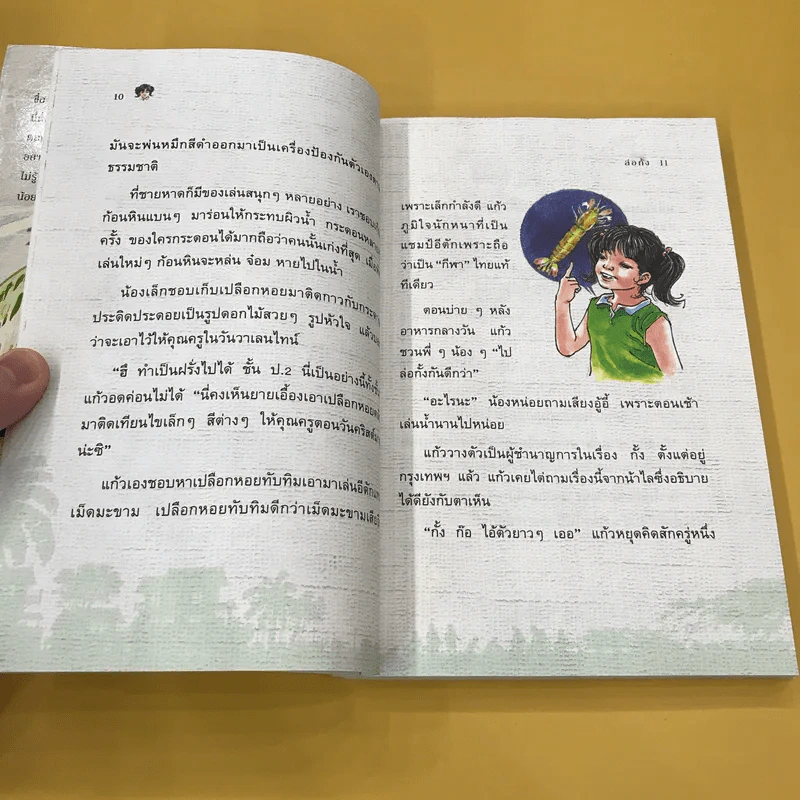 10
มันจะพ่นหมึกสีดำออกมาเป็นเครื่องป้องกันตัวเอง
ธรรมชาติ
ที่ชายหาดก็มีของเล่นสนุกๆ หลายอย่าง
ก้อนหินแบนๆ มาร่อนให้กระทบผิวน้ำ
ครั้ง ของใครกระดอนได้มากถือว่าคนนั้นเก่งที่สุด
เล่นใหม่ๆ ก้อนหินจะหล่น จ๋อม หายไปในน้ำ
น้องเล็กชอบเก็บเปลือกหอยมาติดกาวกับ
ประดิดประดอยเป็นรูปดอกไม้สวยๆ รูปหัวใจ
ว่าจะเอาไว้ให้คุณครูในวันวาเลนไทน์
“ฮึ ทำเป็นฝรั่งไปได้ ชั้น ป.2 นี่เป็นอย่างนี้
แก้วอดค่อนไม่ได้ “นี่คงเห็นยายเอื้องเอาเปลือกหอย
มาติดเทียนไขเล็กๆ สีต่างๆ ให้คุณครูตอนวัน
น่ะซิ”
แก้วเองชอบหาเปลือกหอยทับทิมเอามาเล่นอีตัก
เม็ดมะขาม เปลือกหอยทับทิมดีกว่าเม็ดมะขาม
ล่อกั้ง 11
เพราะเล็กกำลังดี แก้ว
ภูมิใจนักหนาที่เป็น
แชมป์อีตักเพราะถือ
ว่าเป็น “กีฬา” ไทยแท้
ทีเดียว
ตอนบ่าย ๆ หลัง
อาหารกลางวัน แก้ว
ชวนพี่ ๆ น้อง ๆ “ไป
ล่อกั้งกันดีกว่า”
“อะไรนะ” น้องหน่อยถามเสียงอู้อี้ เพราะตอนเช้า
เล่นน้ำนานไปหน่อย
แก้ววางตัวเป็นผู้ชำนาญการในเรื่อง กั้ง ตั้งแต่อยู่
กรุงเทพฯ แล้ว แก้วเคยไต่ถามเรื่องนี้จากน้าไลซึ่งอธิบาย
ได้ดียังกับตาเห็น
“กั้ง ก๊อ ไอ้ตัวยาวๆ เออ” แก้วหยุดคิดสักครู่หนึ่ง